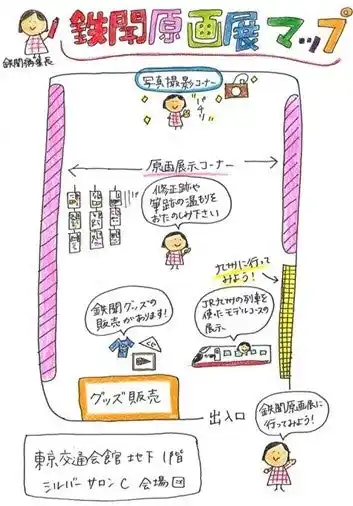 鉄聞原画展マップ
鉄聞編集長
写真撮影コーナー
パチリ
原画展示コーナー
修正跡や
筆跡の温もりを
おたのしみ下さい
九州に行って
みよう!
JR九州の列車を
使ったモデルコースの
展示。
鉄聞グッズの
販売があります!
グッズ販売
出入口
鉄聞原画展に
行ってみよう!
東京交通会館地下1階
シルバーサロンC 会場図